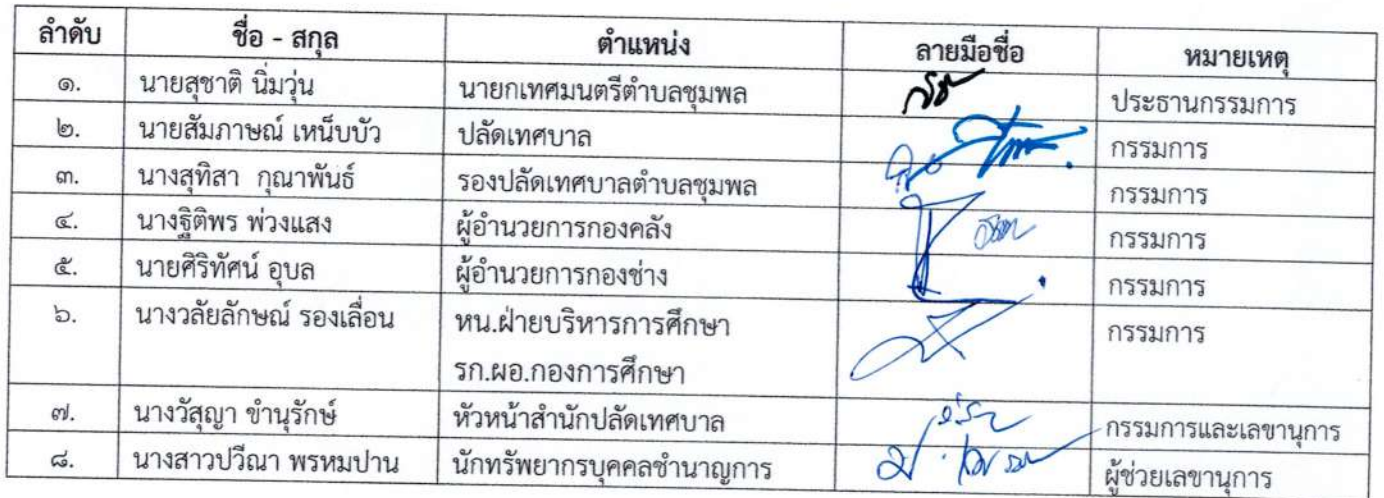 ลำดับ ชื่อ - สกุล ตำแหน่ง ลายมือชื่อ หมายเหตุ
๑. นายสุชาติ นิ่มวุ่น นายกเทศมนตรีตำบลชุมพล ประธานกรรมการ
๒. นายสัมภาษณ์ เหน็บบัว ปลัดเทศบาล กรรมการ
๓. นางสุทิสา กุณาพันธ์ รองปลัดเทศบาลตำบลชุมพล กรรมการ
๔. นางฐิติพร พ่วงแสง ผู้อำนวยการกองคลัง กรรมการ
๕. นายศิริทัศน์ อุบล ผู้อำนวยการกองช่าง กรรมการ
๖. นางวลัยลักษณ์ รองเลื่อน หน.ฝ่ายบริหารการศึกษา กรรมการ
รก.ผอ.กองการศึกษา
๗. นางวัสุญา ขำนุรักษ์ หัวหน้าสำนักปลัดเทศบาล กรรมการและเลขานุการ
๘. นางสาวปวีณา พรหมปาน นักทรัพยากรบุคคลชำนาญการ ผู้ช่วยเลขานุการ